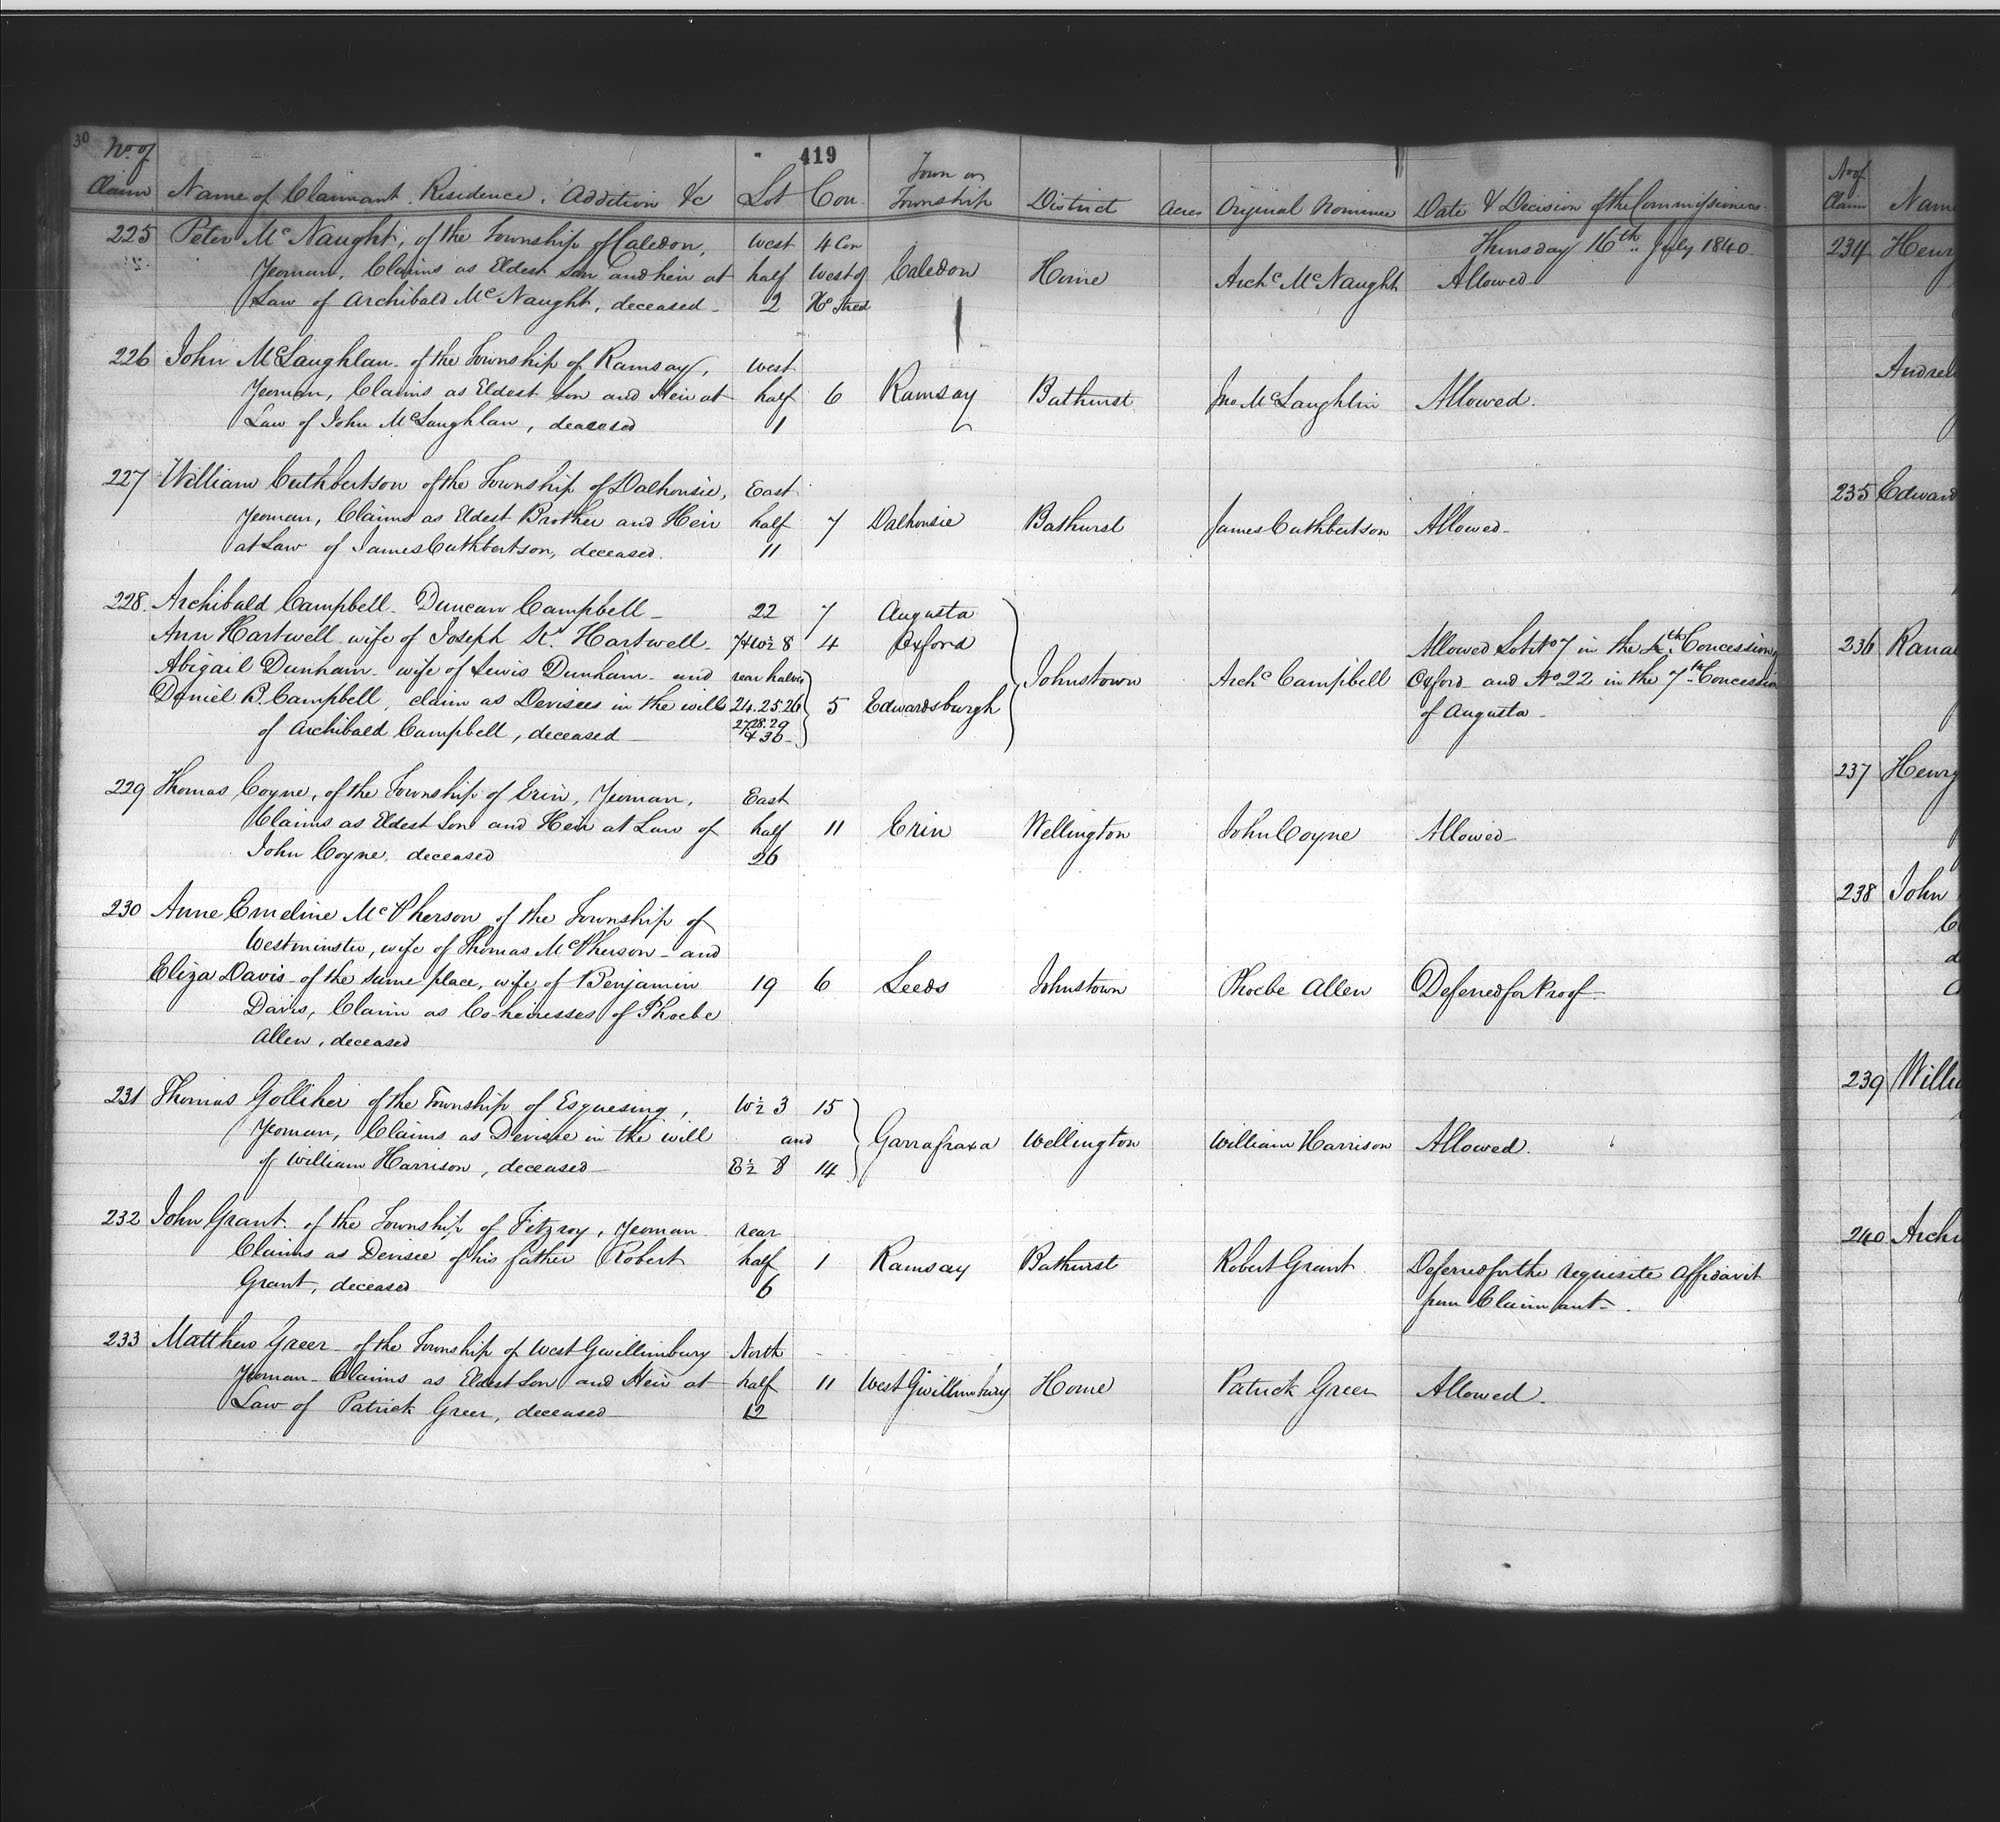 30
419
No. of Claim Name of Claimant. Residence. Addition &c Lot Con Town or Township District Acres Original Nominee Date & Decision of the Commissioners
Thursday 16th July 1840
225 Peter McNaught, of the Township of Caledon, west 4 Con
Yeoman, Claims as Eldest Son and heir at half West of Caledon Home Archd McNaught Allowed
Law of Archibald McNaught, deceased - 2 Ho Street
226 John McLaughlan - of the Township of Ramsay, west
Yeoman, Claims as Eldest Son and Heir at half 6 Ramsay Bathurst Jno McLaughlin Allowed.
Law of John McLaughlan, deceased 1
227 William Cuthbertson of the Township of Dalhousie, East
Yeoman, Claims as Eldest Brother and Heir half 7 Dalhousie Bathurst James Cuthbertson Allowed -
at Law of James Cuthbertson, deceased. 11
228. Archibald Campbell - Duncan Campbell - 22 7 Augusta
Ann Hartwell wife of Joseph K. Hartwell - 7 & W½ 8 4 Oxford Allowed Lot No 7 in the 4th Concession of
Abigail Dunham - wife of Lewis Dunham - and rear halves Johnstown Archd Campbell Oxford and No 22 in the 7th Concession
Daniel B. Campbell, claim as Devisees in the will 24.25.26 5 Edwardsburgh of Augusta -
of Archibald Campbell, deceased - 27 28.29 & 30 -
229 Thomas Coyne, of the Township of Erin, Yeoman, East
Claims as Eldest Son and Heir at Law of half 11 Erin Wellington John Coyne Allowed -
John Coyne, deceased 26
230 Anne Emeline McPherson of the Township of
Westminster, wife of Thomas McPherson - and
Eliza Davis - of the same place, wife of Benjamin 19 6 Leeds Johnstown Phoebe Allen Deferred for Proof -
Davis, Claim as Co-heiresses of Phoebe
Allen, deceased
231 Thomas Golliher of the Township of Esquesing, W½ 3 15
Yeoman, Claims as Devisee in the will and Garrafraxa Wellington William Harrison Allowed.
of William Harrison, deceased - E½ 8 14
232 John Grant of the Township of Fitzroy, Yeoman rear
Claims as Devisee of his father Robert half 1 Ramsay Bathurst Robert Grant Deferred for the requisite Affidavit
Grant, deceased 6 from Claimant -
233 Matthew Greer - of the Township of West Gwillimbury North
Yeoman - Claims as Eldest Son and Heir at half 11 West Gwillimbury Home Patrick Greer Allowed.
Law of Patrick Greer, deceased - 12
No of Claim Name
234 Henry
Andrew
235 Edward
236
237 Henry
238 John
239
240